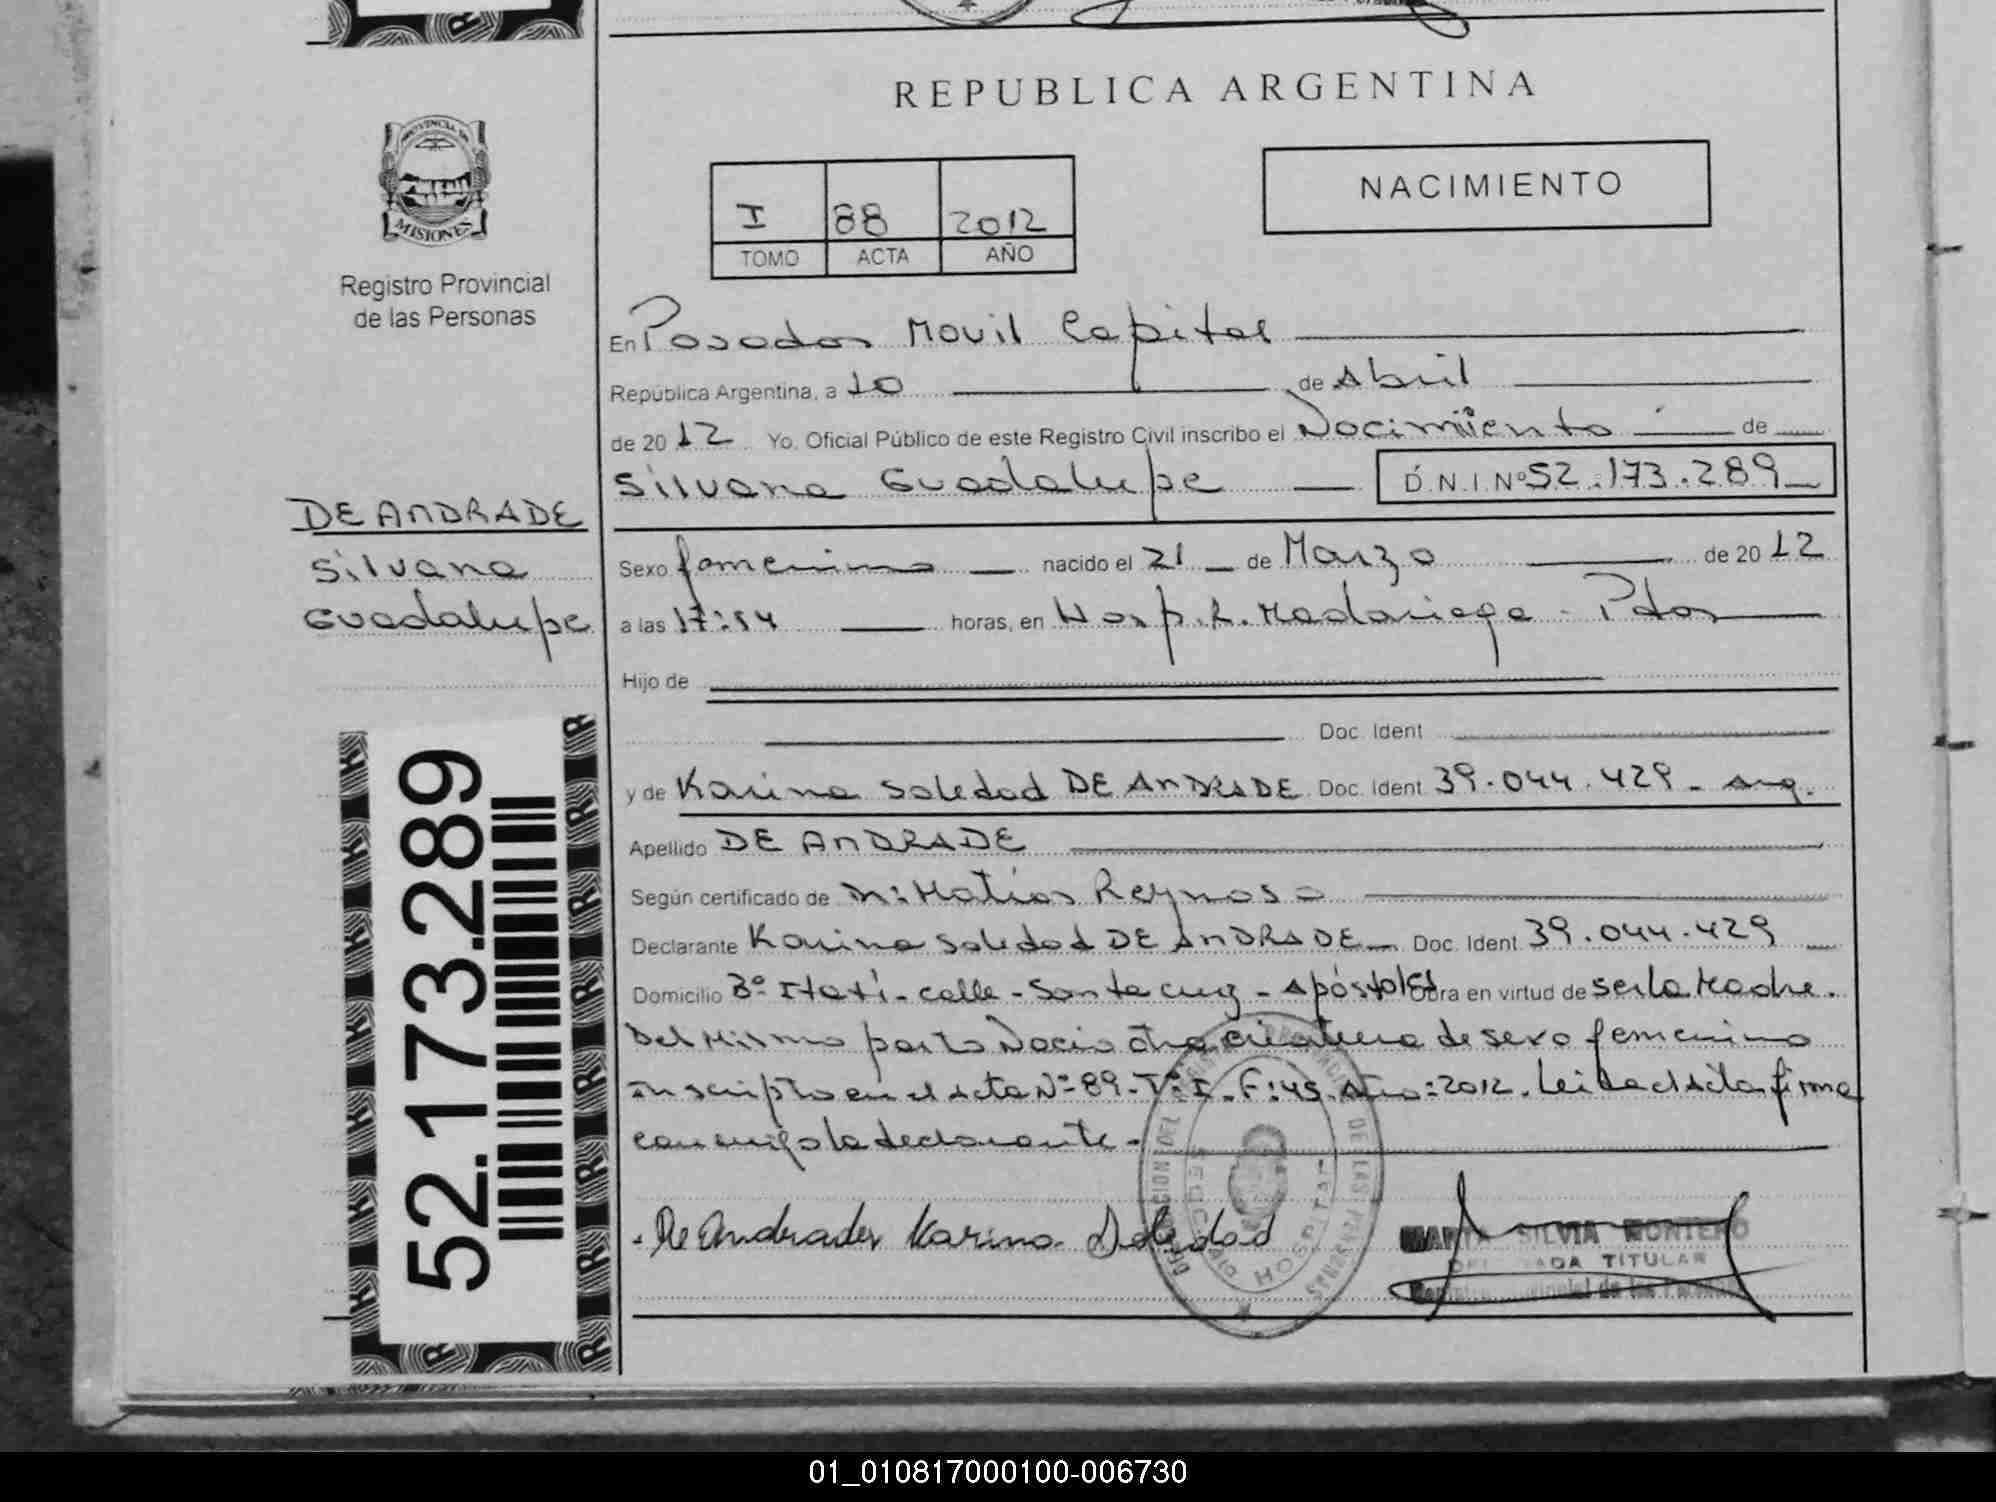 REPUBLICA ARGENTINA
PROVINCIA DE
MISIONES
Registro Provincial
de las Personas
NACIMIENTO
I 88 2012
TOMO ACTA AÑO
En Posadas Movil Capital
República Argentina, a 10 de Abril
de 2012 Yo. Oficial Público de este Registro Civil inscribo el Nacimiento de
Silvana Guadalupe D.N.I.Nº 52.173.289
DE ANDRADE
Silvana
Guadalupe
Sexo femenino nacido el 21 de Marzo de 2012
a las 17:54 horas, en Hosp. R. Madariaga - Pdas
Hijo de
Doc. Ident
y de Karina Soledad DE ANDRADE Doc. Ident 39.044.429 - Arg.
Apellido DE ANDRADE
Según certificado de Matías Reynoso
Declarante Karina Soledad DE ANDRADE Doc. Ident 39.044.429
Domicilio Bº Itatí - calle - Santa Cruz - Apóstoles Obra en virtud de ser la Madre.
Del Mismo parto Nacio otra criatura de sexo femenino
inscripto en el Acta Nº 89 - Tº I - F: 45. Año: 2012. Leida el Acta firma
conmigo la declarante -
De Andrade Karina Soledad
SILVIA MONTERO
TITULAR
HOSPITAL
52.173.289
01_010817000100-006730